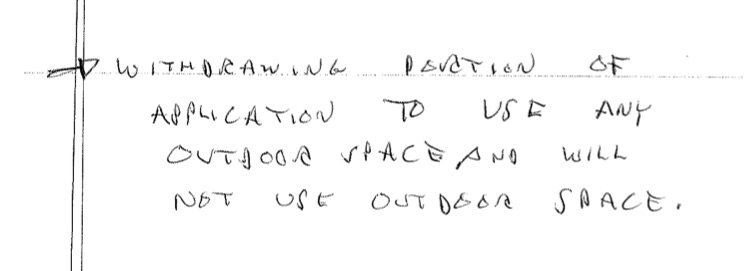 WITHDRAWING PORTION OF
APPLICATION TO USE ANY
OUTDOOR SPACE AND WILL
NOT USE OUTDOOR SPACE.